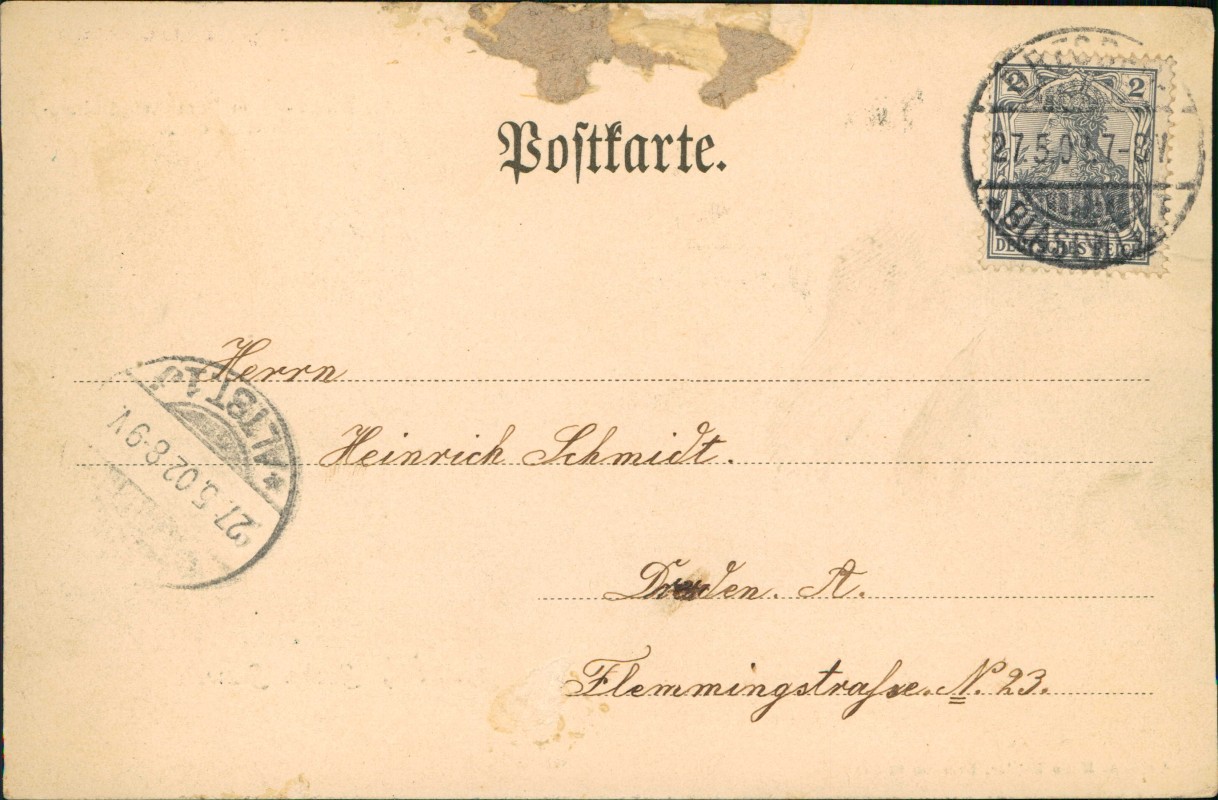 Postkarte.
2 2
27.5.02 7-8V
DEUTSCHES REICH
Herrn
Heinrich Schmidt.
ALTST.
27.5.02 8-9V.
Dresden. A.
Flemmingstraſse. N. 23.